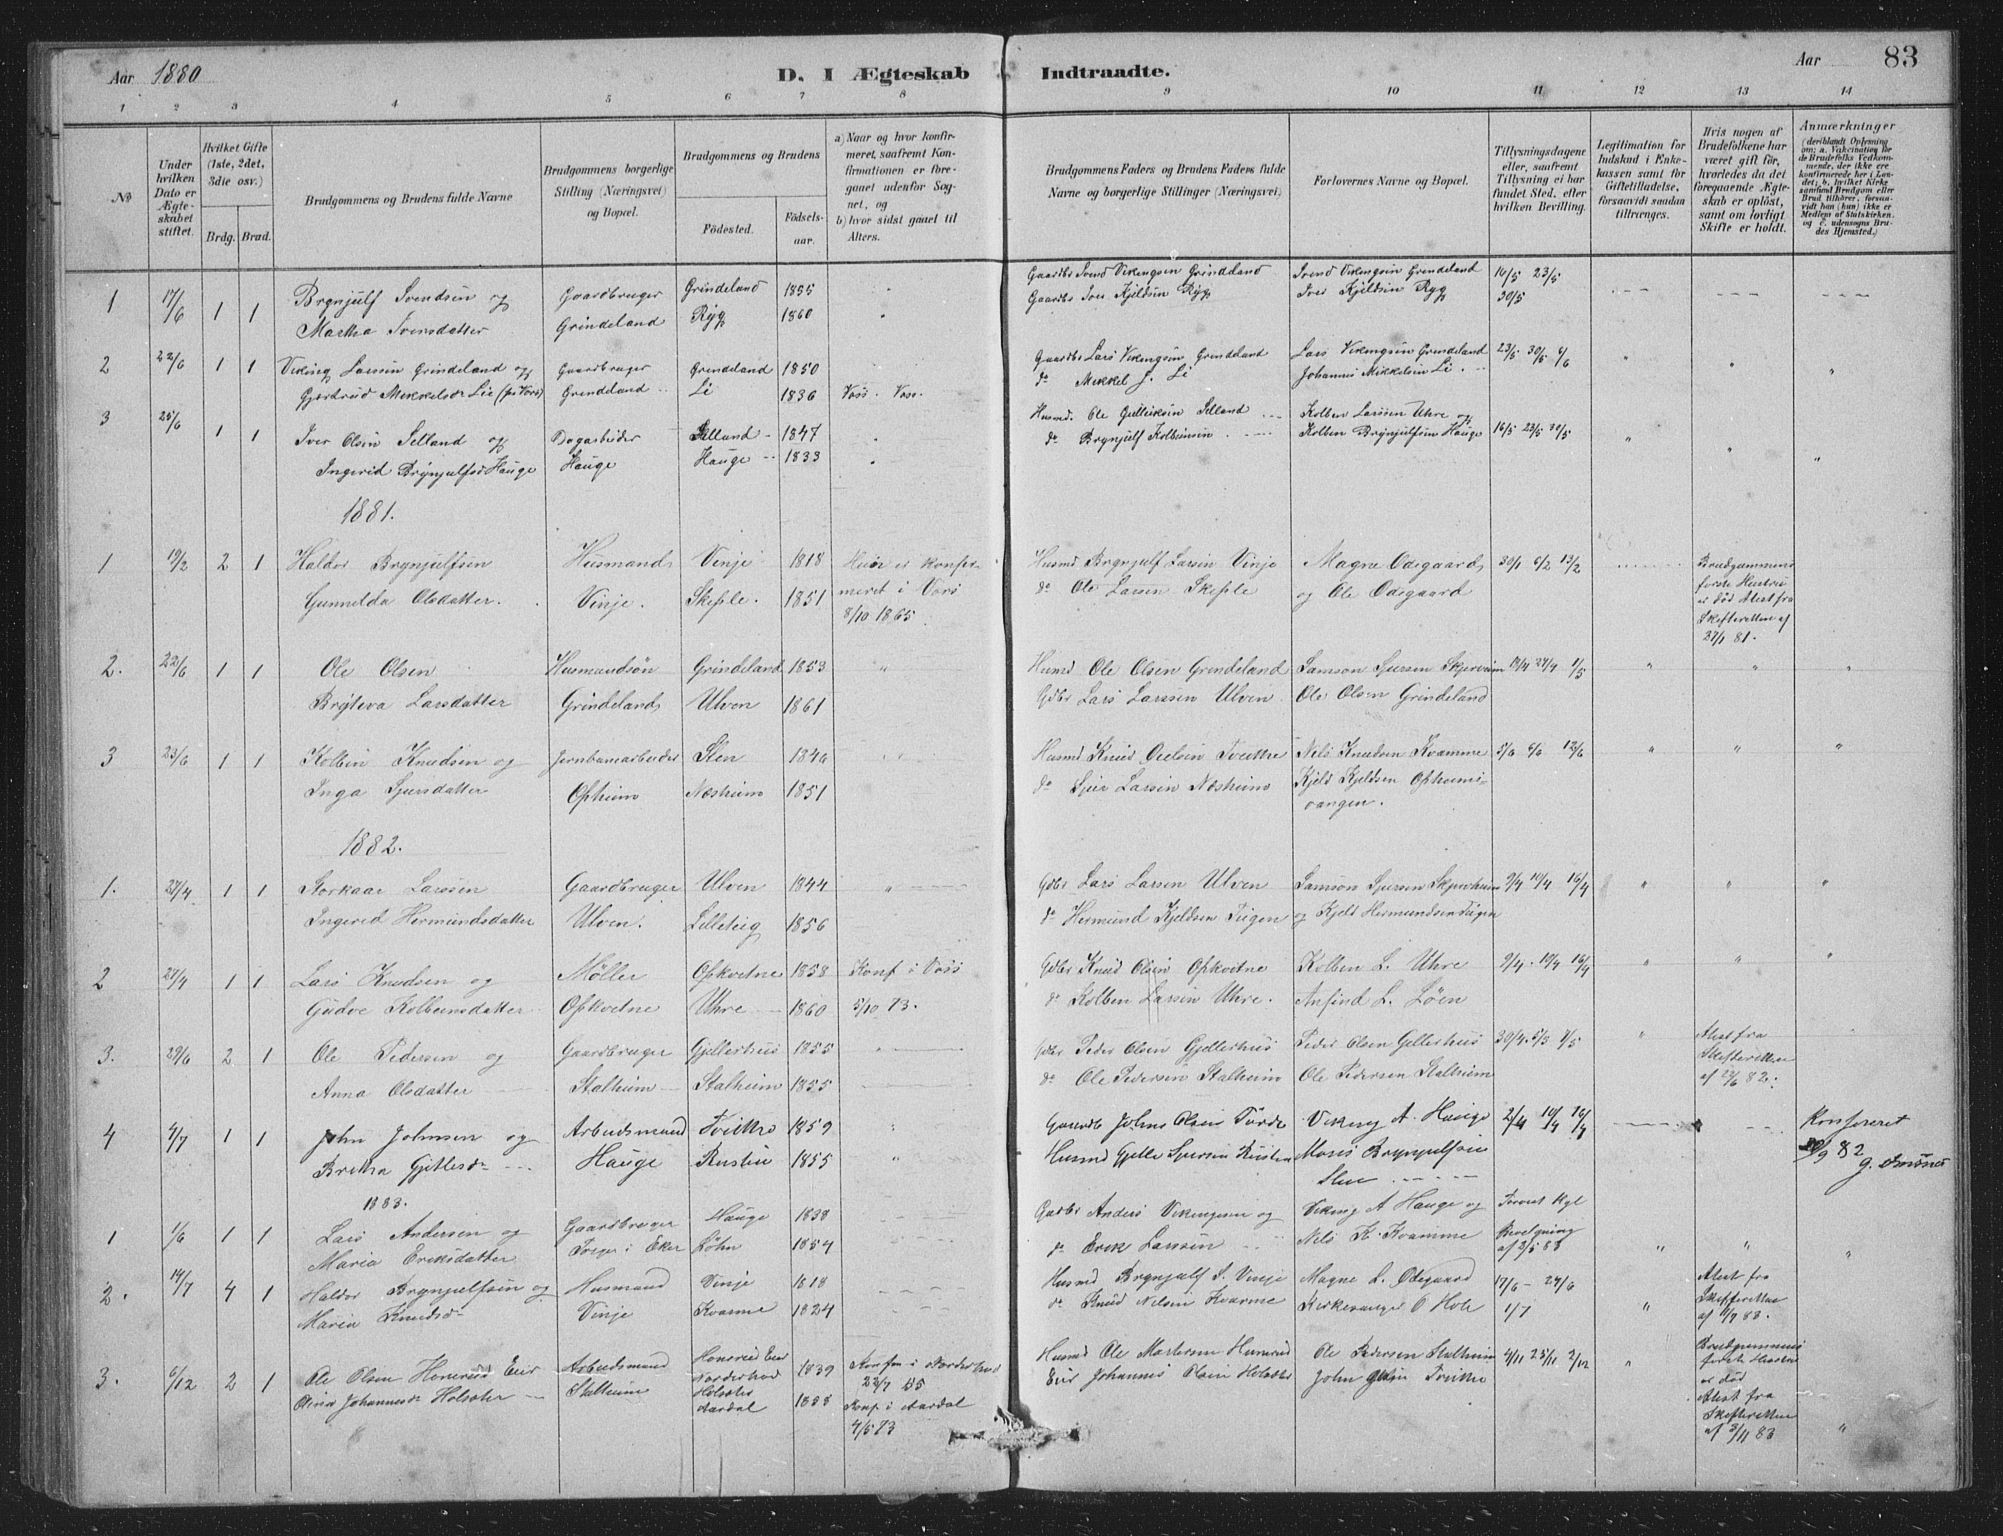 Aar 1880
D. I Ægteskab
Indtraadte.
Aar
83
1 2 3 4 5 6 7 8
9 10 11 12 13 14
No
Under hvilken Dato er Ægteskabet stiftet.
Hvilket Gifte (1ste, 2det, 3die osv.)
Brdg. Brud.
Brudgommens og Brudens fulde Navne
Brudgommens borgerlige Stilling (Næringsvei) og Bopæl.
Brudgommens og Brudens
Fødested.
Fødselsaar.
a) Naar og hvor konfirmeret, saafremt Konfirmationen er foregaaet udenfor Sognet, og
b) hvor sidst gaaet til Alters.
Brudgommens Faders og Brudens Faders fulde Navne og borgerlige Stillinger (Næringsvei.)
Forlovernes Navne og Bopæl.
Tillysningsdagene eller, saafremt Tillysning ei har fundet Sted, efter hvilken Bevilling.
Legitimation for Indskud i Enkekassen samt for Giftetilladelse, forsaavidt saadan tiltrænges.
Hvis nogen af Brudefolkene har været gift før, hvorledes da det foregaaende Ægteskab er opløst, samt om lovligt Skifte er holdt.
Anmærkninger
1 17/6 1 1 Brynjulf Svendsen og Gaardbruger Grindeland 1855 Gaardbr Svend Vikingsen Grindeland Svend Vikingsen Grindeland 16/5 23/5
Martha Iversdatter Grindeland Ryg 1860 Gaardbr Iver Kjeldsen Ryg Iver Kjeldsen Ryg 30/5
2 22/6 1 1 Viking Larssen Grindeland og Gaardbruger Grindeland 1850 Gaardbr Lars Vikingsen Grindeland Lars Vikingsen Grindeland 23/5 30/5 6/6
Gjertrud Mikkelsdr Lie (pr Voss) Grindeland Li 1836 Voss. Voss. do Mikkel J. Li Johannes Mikkelsen Li
3 25/6 1 1 Iver Olsen Selland og Dagarbeider Selland 1847 Husmd. Ole Gulleiksen Selland Kolben Larssen Uhre og
Ingerid Brynjulfsd Hauge Hauge Hauge 1833 do Brynjulf Kolbensen Kolben Brynjulfsen Hauge 16/5 23/5 30/5
1881.
1 19/2 2 1 Haldor Brynjulfsen Husmand Vinje 1818 Hun er konfir- Husmd Brynjulf Larsen Vinje Magne Odegaard 30/1 6/2 13/2 Brudgommens
Gunnilda Olsdatter. Vinje. Skeple. 1851 meret i Vors do Ole Larsen Skeple og Ole Odegaard første Hustru
8/10 1865. er død Atest fra
Skifteretten af
27/1 81.
2. 22/6 1 1 Ole Olsen Husmandsøn Grindeland 1853 Husmd Ole Olsen Grindeland Samson Sjursen Skjerheim 19/4 24/4 1/5
Bryteva Larsdatter Grindeland Ulven 1861 Gdbr Lars Larssen Ulven Ole Olsen Grindeland
3 23/6 1 1 Kolbin Knudsen og Jernbanarbeider Sten 1846 Husmd Knud Nielsen Tvithre Nels Knudsen Kvamme 5/6 6/6 12/6
Inga Sjursdatter Opheim Næsheim 1851 do Sjur Larsen Næsheim Kjeld Kjeldsen Opheims-
vangen.
1882.
1. 27/4 1 1 Storkaar Larssen Gaardbruger Ulven 1844 Gdbr Lars Larsen Ulven Samson Sjursen Skjerheim 9/4 10/4 16/4
Ingerid Hermundsdatter Ulven. Lilleteig 1856 do Hermund Kjeldsen Teigen og Kjeld Hermundsen Teigen
2 27/4 1 1 Lars Knudsen og Møller Opkvitne 1858 Konf i Vors Gdbr Knud Olsen Opkvitne Kolben L. Uhre 9/4. 10/4 16/4
Gudve Kolbensdatter Opkvitne Uhre 1860 5/10 73. do Kolben Larsen Uhre. Anfind L. Løen
3. 29/6 2 1 Ole Pedersen og Gaardbruger Gjellerhus 1855 Gdbr Peder Olsen Gjellerhus Peder Olsen Gellerhus 30/4 5/3 7/5 Atest fra
Anna Olsdatter Stalheim Stalheim 1855 do Ole Pedersen Stalheim Ole Pedersen Stalheim Skifteretten
af 23/6 82.
4 4/7 1 1 John Johnsen og Arbeidsmand Tvithre 1859 Gaardb Johns Olsen Viking A. Hauge 2/4 10/4 16/4 Konfereret
Britha Gjellesdr Hauge Rusten 1855 Husmd Gjelle Sjursen Rusten Moses Brynjulfsen 9 82
1883.
1 1/6 1 1 Lars Andersen og Gaardbruger Hauge 1838 Gadbr Anders Vikingsen og Viking A Hauge og Foreet Kgl
Maria Eriksdatter Tveger i Eker Løhn 1854 do Erik Larssen Nels K. Kvamme Bevilgning
af 3/5 83
2. 14/7 4 1 Haldor Brynjulfsen og Husmand Vinje 1818 Husmd Brynjulf S. Vinje Magne L. Ødegaard 17/6 - 24/6 Atest fra
Maria Knudsdr Vinje Kvamme 1824 do Knud Nelsen Kvamme Kirkesanger O Hole 1/7 Skifteretten
af 11/7 83.
3. 6/12 2 1 Ole Olsen Eier Arbeidsmand 1839 Konfm i Norderhov Husmd Ole Mortensen Ole Pedersen Stalheim 4/11 25/11 2/12 Brudgommens
Oliva Johannesdr Holsæter Stalheim Norderhov Holsæter Aardal 1858 Konf i Aardal Eier Johannes Olsen Holsæter John Tvithre første Hustru
4/5 73 er død
Atest fra
Skifteretten
af 3/11 83